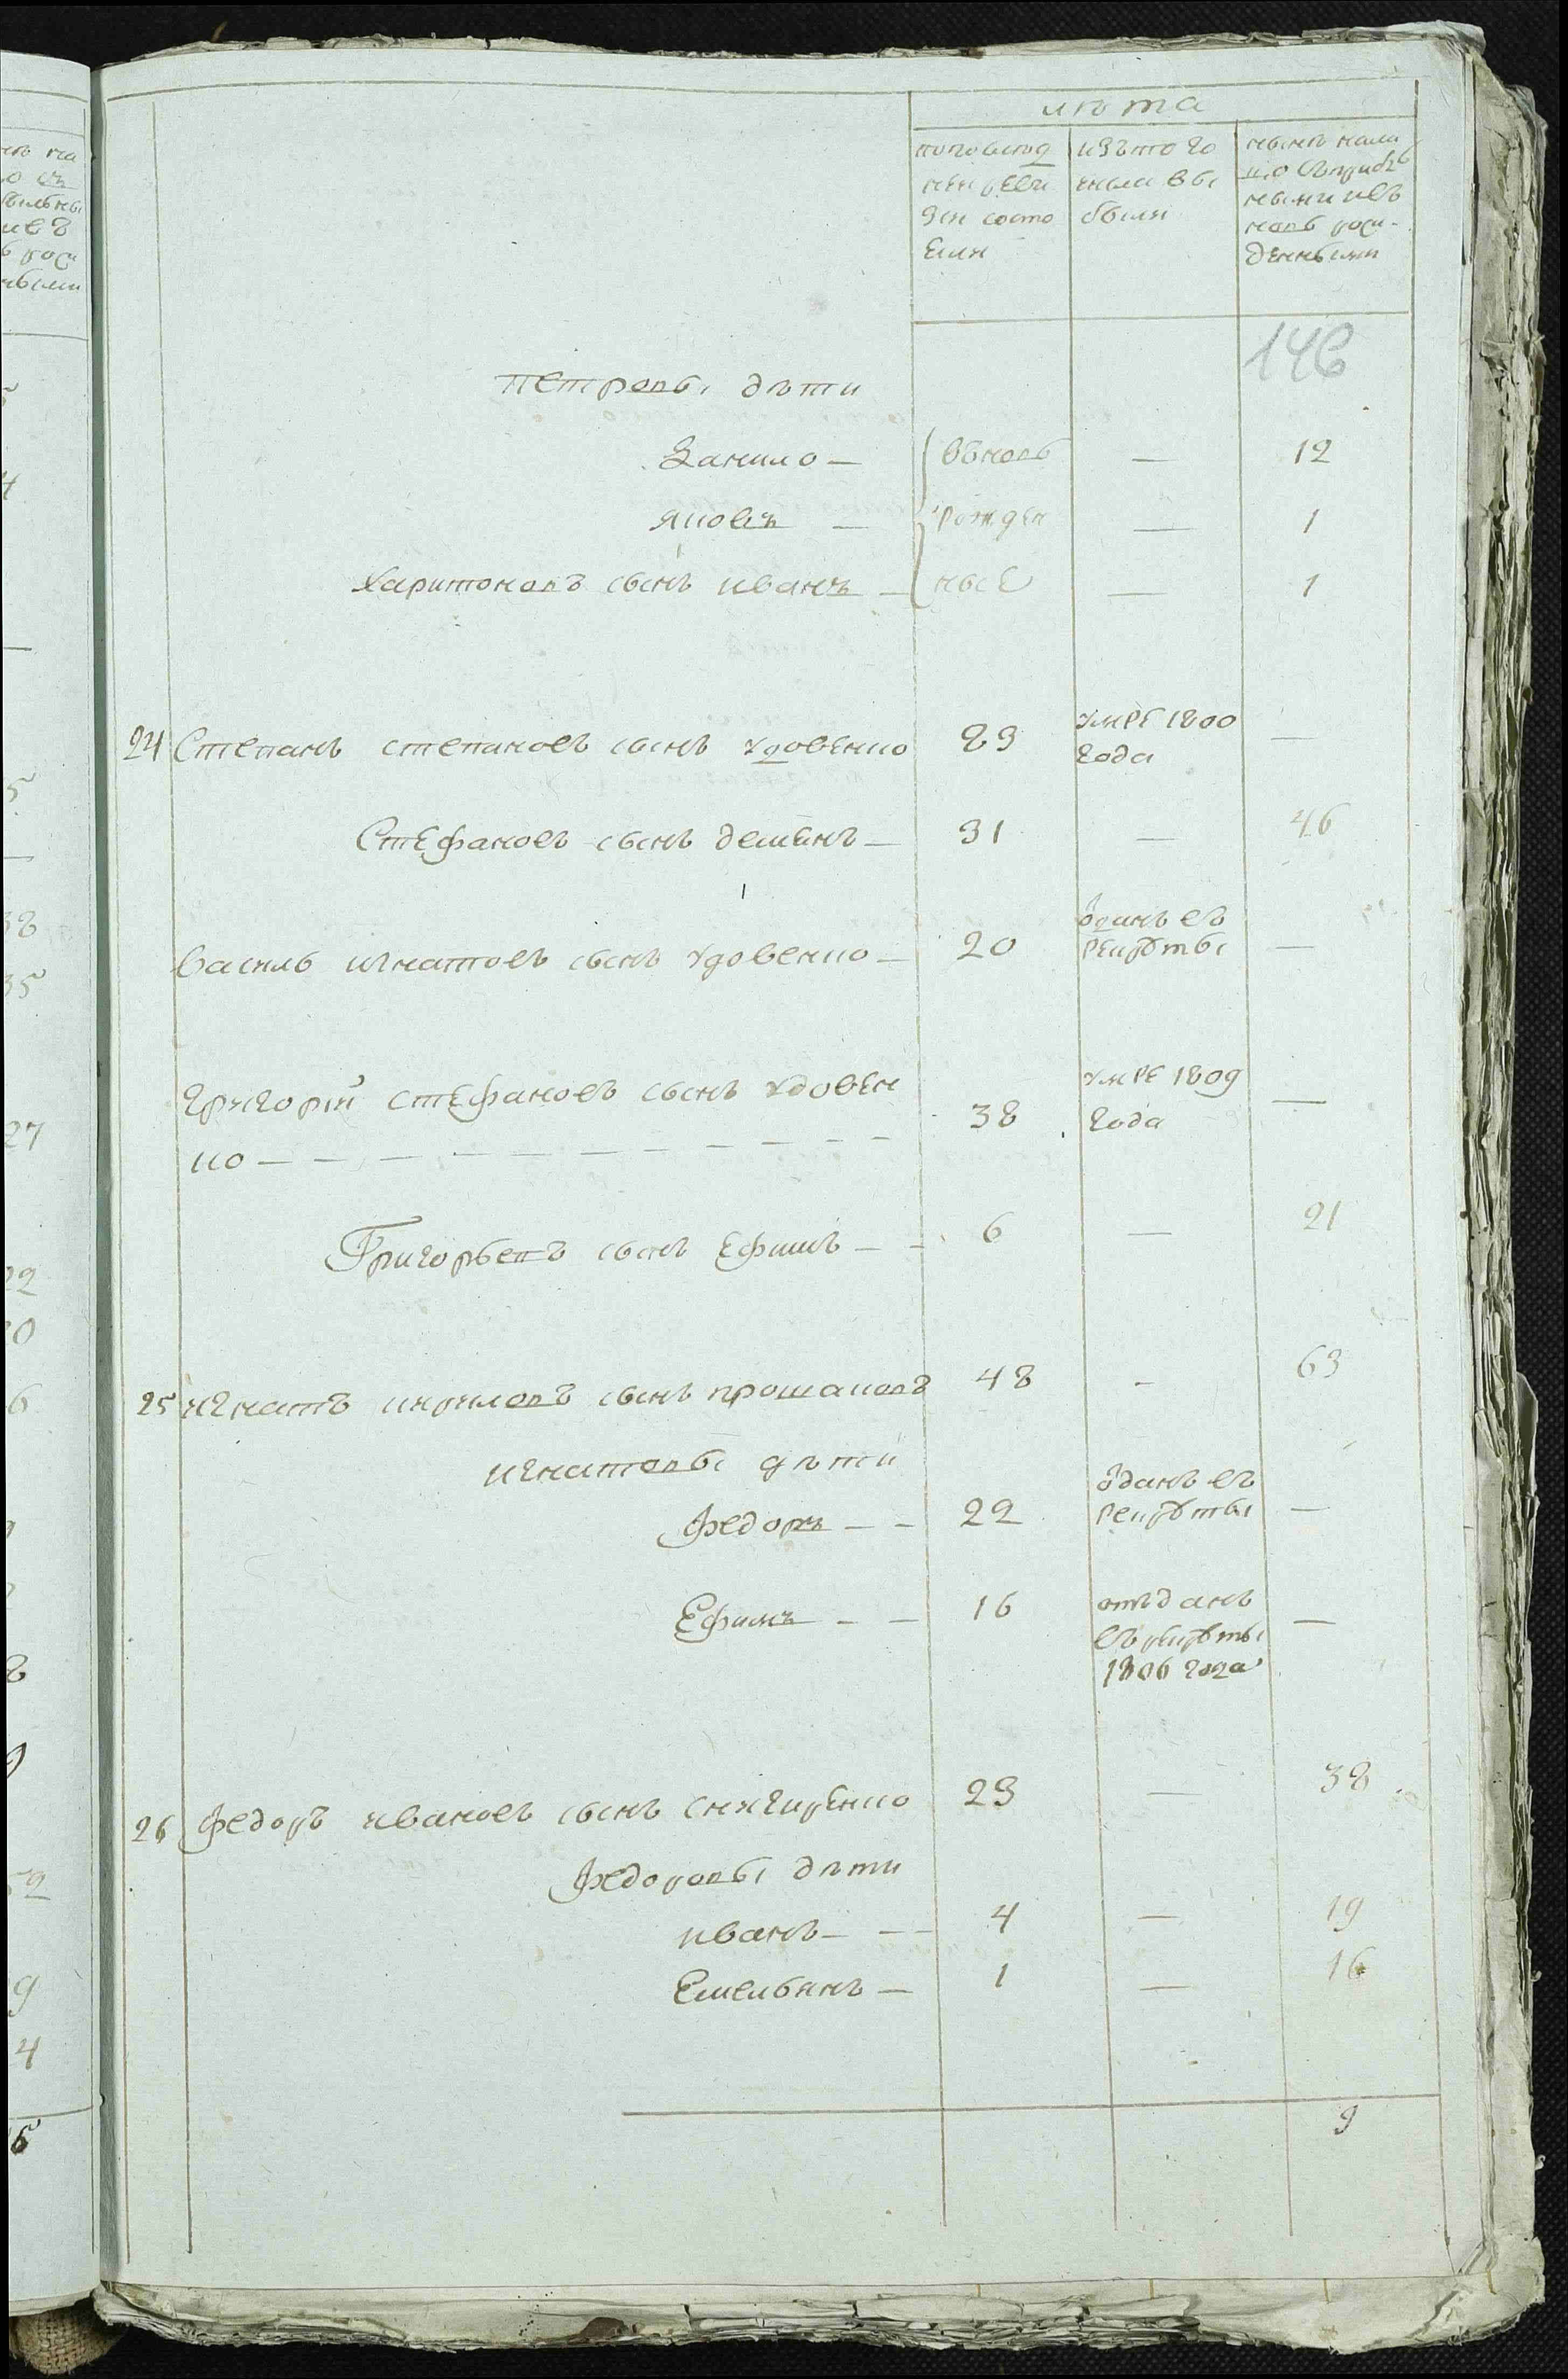 лѣта
по послѣд
ней реви
зіи состо
яли
изъ того
числа вы
были
нынѣ нали
цо съ прибы
лыми и въ
новь рож
денными
146
Петровы дѣти
Данило — вновь — 12
Яковъ — рожден — 1
Харитоновъ сынъ Иванъ — ные — 1
24 Степанъ Степановъ сынъ Удовенко 83 умре 1800
года —
Стефановъ сынъ Демьянъ — 31 — 46
Василь Игнатовъ сынъ Удовенко — 20 отданъ въ
рекруты —
Григорій Стефановъ сынъ Удовен
ко — 38 умре 1809
года —
Григорьевъ сынъ Ефимъ — 6 — 21
25 Игнатъ Кириловъ сынъ Прошаковъ 48 - 63
Игнатовы дѣти
Федоръ — 22 отданъ въ
рекруты —
Ефимъ — 16 отъданъ
въ рекруты
1806 года —
26 Федоръ Ивановъ сынъ Снѧгиренко 23 — 38
Федоровы дѣти
Иванъ — 4 — 19
Емельянъ — 1 — 16
9